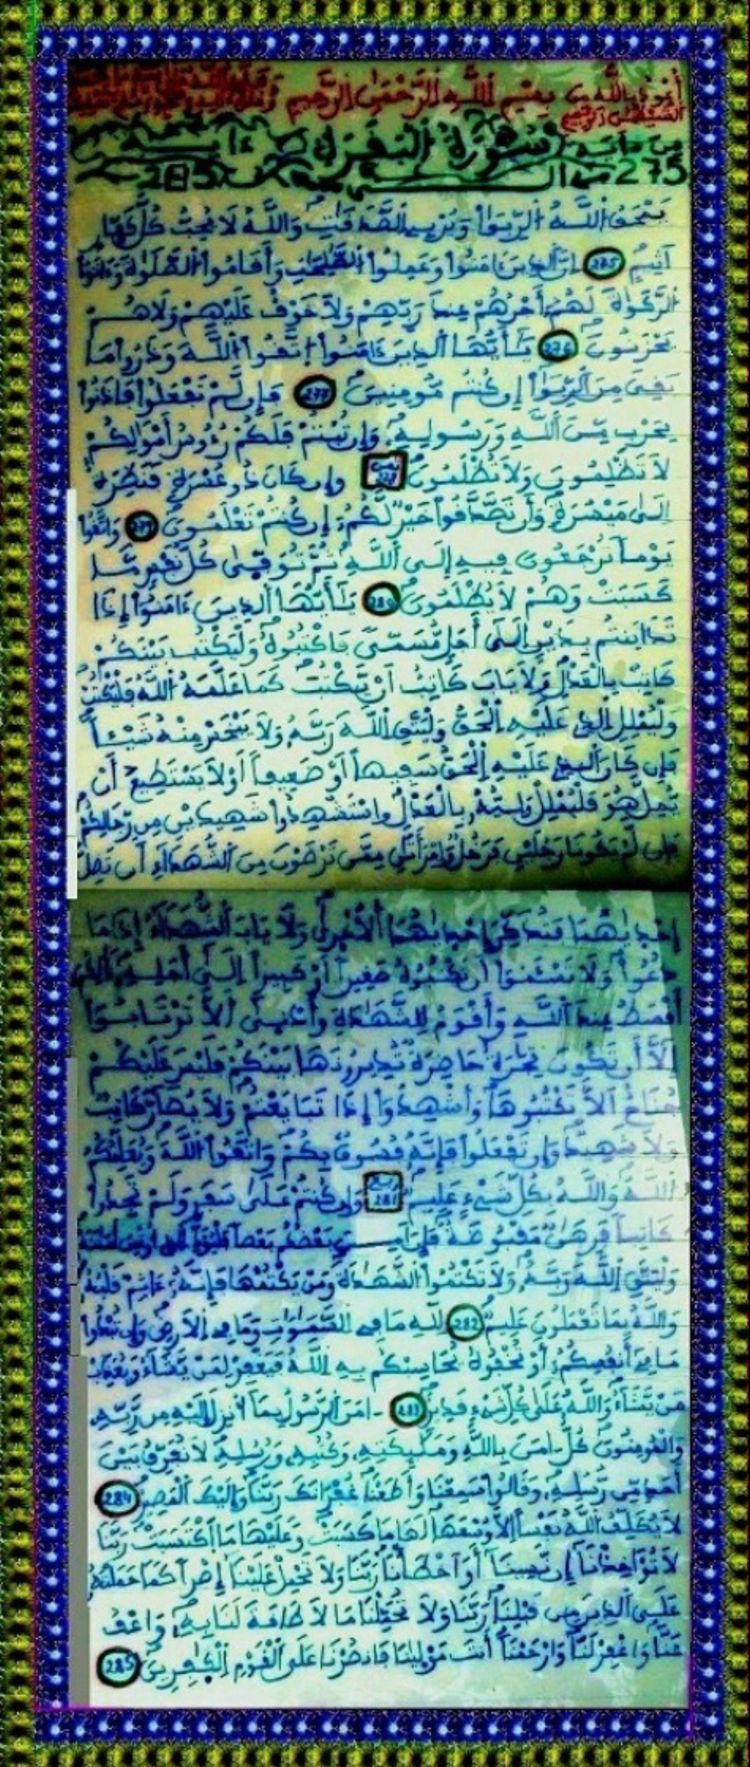 أعوذ بالله من الشيطان الرجيم بسم الله الرحمن الرحيم
من ءاية 275 سورة البقرة 285
يَمْحَقُ اللَّهُ الرِّبَوٰا۟ وَيُرْبِي الصَّدَقَٰتِ وَاللَّهُ لَا يُحِبُّ كُلَّ كَفَّارٍ
اَثِيمٍ 275 إِنَّ الذِينَ ءَامَنُوا وَعَمِلُوا الصَّٰلِحَٰتِ وَأَقَامُوا الصَّلَوٰةَ وَءَاتَوُا
الزَّكَوٰةَ لَهُمْ أَجْرُهُمْ عِندَ رَبِّهِمْ وَلَا خَوْفٌ عَلَيْهِمْ وَلَا هُمْ
يَحْزَنُونَ 276 يَٰأَيُّهَا الذِينَ ءَامَنُوا اتَّقُوا اللَّهَ وَذَرُوا مَا
بَقِيَ مِنَ الرِّبَوٰا إِن كُنتُم مُّومِنِينَ 277 فَإِن لَّمْ تَفْعَلُوا فَاذَنُوا
بِحَرْبٍ مِّنَ اللَّهِ وَرَسُولِهِ وَإِن تُبْتُمْ فَلَكُمْ رُءُوسُ أَمْوَٰلِكُمْ
لَا تَظْلِمُونَ وَلَا تُظْلَمُونَ ثمن 278 وَإِن كَانَ ذُو عُسْرَةٍ فَنَظِرَةٌ
إِلَىٰ مَيْسُرَةٍ وَأَن تَصَّدَّقُوا خَيْرٌ لَّكُمْ إِن كُنتُمْ تَعْلَمُونَ 279 وَاتَّقُوا
يَوْماً تُرْجَعُونَ فِيهِ إِلَى اللَّهِ ثُمَّ تُوَفَّىٰ كُلُّ نَفْسٍ مَّا
كَسَبَتْ وَهُمْ لَا يُظْلَمُونَ 280 يَٰأَيُّهَا الذِينَ ءَامَنُوا إِذَا
تَدَايَنتُم بِدَيْنٍ إِلَىٰ أَجَلٍ مُّسَمًّى فَاكْتُبُوهُ وَلْيَكْتُب بَّيْنَكُمْ
كَاتِبٌ بِالْعَدْلِ وَلَا يَابَ كَاتِبٌ اَنْ يَّكْتُبَ كَمَا عَلَّمَهُ اللَّهُ فَلْيَكْتُبْ
وَلْيُمْلِلِ الذِي عَلَيْهِ الْحَقُّ وَلْيَتَّقِ اللَّهَ رَبَّهُ وَلَا يَبْخَسْ مِنْهُ شَيْئاً
فَإِن كَانَ الذِي عَلَيْهِ الْحَقُّ سَفِيهاً أَوْ ضَعِيفاً أَوْ لَا يَسْتَطِيعُ أَنْ
يُّمِلَّ هُوَ فَلْيُمْلِلْ وَلِيُّهُ بِالْعَدْلِ وَاسْتَشْهِدُوا شَهِيدَيْنِ مِن رِّجَالِكُمْ
فَإِن لَّمْ يَكُونَا رَجُلَيْنِ فَرَجُلٌ وَامْرَأَتَٰنِ مِمَّن تَرْضَوْنَ مِنَ الشُّهَدَاءِ أَن تَضِلَّ
إِحْدَيٰهُمَا فَتُذَكِّرَ إِحْدَيٰهُمَا الْأُخْرَىٰ وَلَا يَابَ الشُّهَدَاءُ إِذَا مَا
دُعُوا وَلَا تَسْئَمُوا أَن تَكْتُبُوهُ صَغِيراً أَوْ كَبِيراً إِلَىٰ أَجَلِهِ ذَٰلِكُمْ
أَقْسَطُ عِندَ اللَّهِ وَأَقْوَمُ لِلشَّهَٰدَةِ وَأَدْنَىٰ أَلَّا تَرْتَابُوا
إِلَّا أَن تَكُونَ تِجَٰرَةٌ حَاضِرَةٌ تُدِيرُونَهَا بَيْنَكُمْ فَلَيْسَ عَلَيْكُمْ
جُنَاحٌ اَلَّا تَكْتُبُوهَا وَأَشْهِدُوا إِذَا تَبَايَعْتُمْ وَلَا يُضَارَّ كَاتِبٌ
وَلَا شَهِيدٌ وَإِن تَفْعَلُوا فَإِنَّهُ فُسُوقٌ بِكُمْ وَاتَّقُوا اللَّهَ وَيُعَلِّمُكُمُ
اللَّهُ وَاللَّهُ بِكُلِّ شَيْءٍ عَلِيمٌ ربع 281 وَإِن كُنتُمْ عَلَىٰ سَفَرٍ وَلَمْ تَجِدُوا
كَاتِباً فَرِهَٰنٌ مَّقْبُوضَةٌ فَإِنْ أَمِنَ بَعْضُكُم بَعْضاً فَلْيُؤَدِّ الذِي اوتُمِنَ أَمَٰنَتَهُ
وَلْيَتَّقِ اللَّهَ رَبَّهُ وَلَا تَكْتُمُوا الشَّهَٰدَةَ وَمَنْ يَّكْتُمْهَا فَإِنَّهُ ءَاثِمٌ قَلْبُهُ
وَاللَّهُ بِمَا تَعْمَلُونَ عَلِيمٌ 282 لِلَّهِ مَا فِي السَّمَٰوَٰتِ وَمَا فِي الْأَرْضِ وَإِن تُبْدُوا
مَا فِي أَنفُسِكُمْ أَوْ تُخْفُوهُ يُحَاسِبْكُم بِهِ اللَّهُ فَيَغْفِرْ لِمَنْ يَّشَاءُ وَيُعَذِّبْ
مَنْ يَّشَاءُ وَاللَّهُ عَلَىٰ كُلِّ شَيْءٍ قَدِيرٌ 283 ءَامَنَ الرَّسُولُ بِمَا أُنزِلَ إِلَيْهِ مِن رَّبِّهِ
وَالْمُومِنُونَ كُلٌّ ءَامَنَ بِاللَّهِ وَمَلَٰئِكَتِهِ وَكُتُبِهِ وَرُسُلِهِ لَا نُفَرِّقُ بَيْنَ
أَحَدٍ مِّن رُّسُلِهِ وَقَالُوا سَمِعْنَا وَأَطَعْنَا غُفْرَانَكَ رَبَّنَا وَإِلَيْكَ الْمَصِيرُ 284
لَا يُكَلِّفُ اللَّهُ نَفْساً إِلَّا وُسْعَهَا لَهَا مَا كَسَبَتْ وَعَلَيْهَا مَا اكْتَسَبَتْ رَبَّنَا
لَا تُوَاخِذْنَا إِن نَّسِينَا أَوْ أَخْطَأْنَا رَبَّنَا وَلَا تَحْمِلْ عَلَيْنَا إِصْراً كَمَا حَمَلْتَهُ
عَلَى الذِينَ مِن قَبْلِنَا رَبَّنَا وَلَا تُحَمِّلْنَا مَا لَا طَاقَةَ لَنَا بِهِ وَاعْفُ
عَنَّا وَاغْفِرْ لَنَا وَارْحَمْنَا أَنتَ مَوْلَيٰنَا فَانصُرْنَا عَلَى الْقَوْمِ الْكَٰفِرِينَ 285